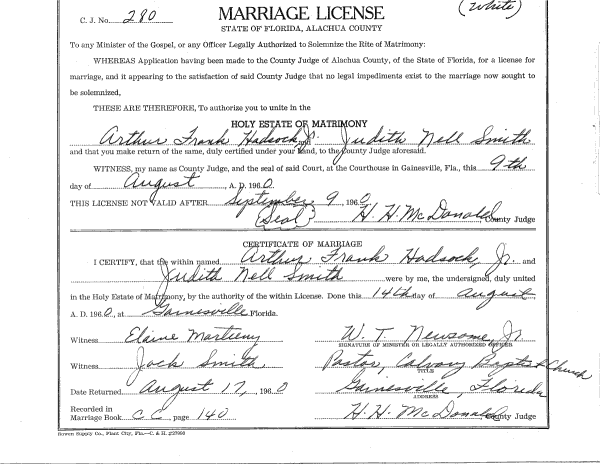 (White)
C. J. No. 280 MARRIAGE LICENSE
STATE OF FLORIDA, ALACHUA COUNTY
To any Minister of the Gospel, or any Officer Legally Authorized to Solemnize the Rite of Matrimony:
WHEREAS Application having been made to the County Judge of Alachua County, of the State of Florida, for a license for
marriage, and it appearing to the satisfaction of said County Judge that no legal impediments exist to the marriage now sought to
be solemnized,
THESE ARE THEREFORE, To authorize you to unite in the
HOLY ESTATE OF MATRIMONY
Arthur Frank Hadsock, Jr. Judith Nell Smith
and that you make return of the same, duly certified under your hand, to the County Judge aforesaid.
WITNESS, my name as County Judge, and the seal of said Court, at the Courthouse in Gainesville, Fla., this 9th
day of August, A. D. 1960.
THIS LICENSE NOT VALID AFTER September 9, 1960
(Seal) H. H. McDonald County Judge
CERTIFICATE OF MARRIAGE
I CERTIFY, that the within named Arthur Frank Hadsock, Jr. and
Judith Nell Smith were by me, the undersigned, duly united
in the Holy Estate of Matrimony, by the authority of the within License. Done this 14th day of August,
A. D. 1960, at Gainesville Florida.
Witness Elaine W. T. Newsome, Jr.
SIGNATURE OF MINISTER OR LEGALLY AUTHORIZED OFFICER
Witness Jack Smith Pastor, Calvary Baptist Church
TITLE
Date Returned August 17, 1960 Gainesville, Florida
ADDRESS
Recorded in
Marriage Book CC, page 140 H. H. McDonald County Judge
Bowen Supply Co., Plant City, Fla.—C. & H.